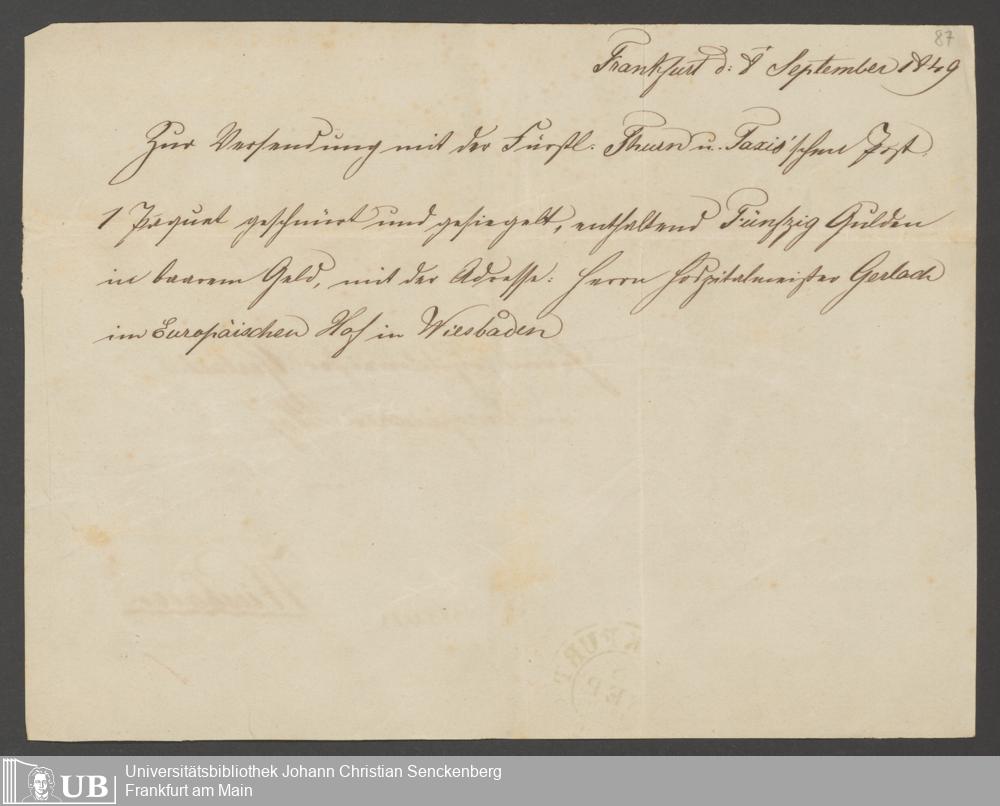 87
Frankfurt d: 8 September 1849
Zur Versendung mit der Fürstl. Thurn u. Taxis'schen Post
1 Paquet geschnürt und gesiegelt, enthaltend Fünfzig Gulden
in baarem Geld, mit der Adresse: Herrn Hospitalmeister Gerlach
im Europäischen Hof in Wiesbaden
UB
Universitätsbibliothek Johann Christian Senckenberg
Frankfurt am Main